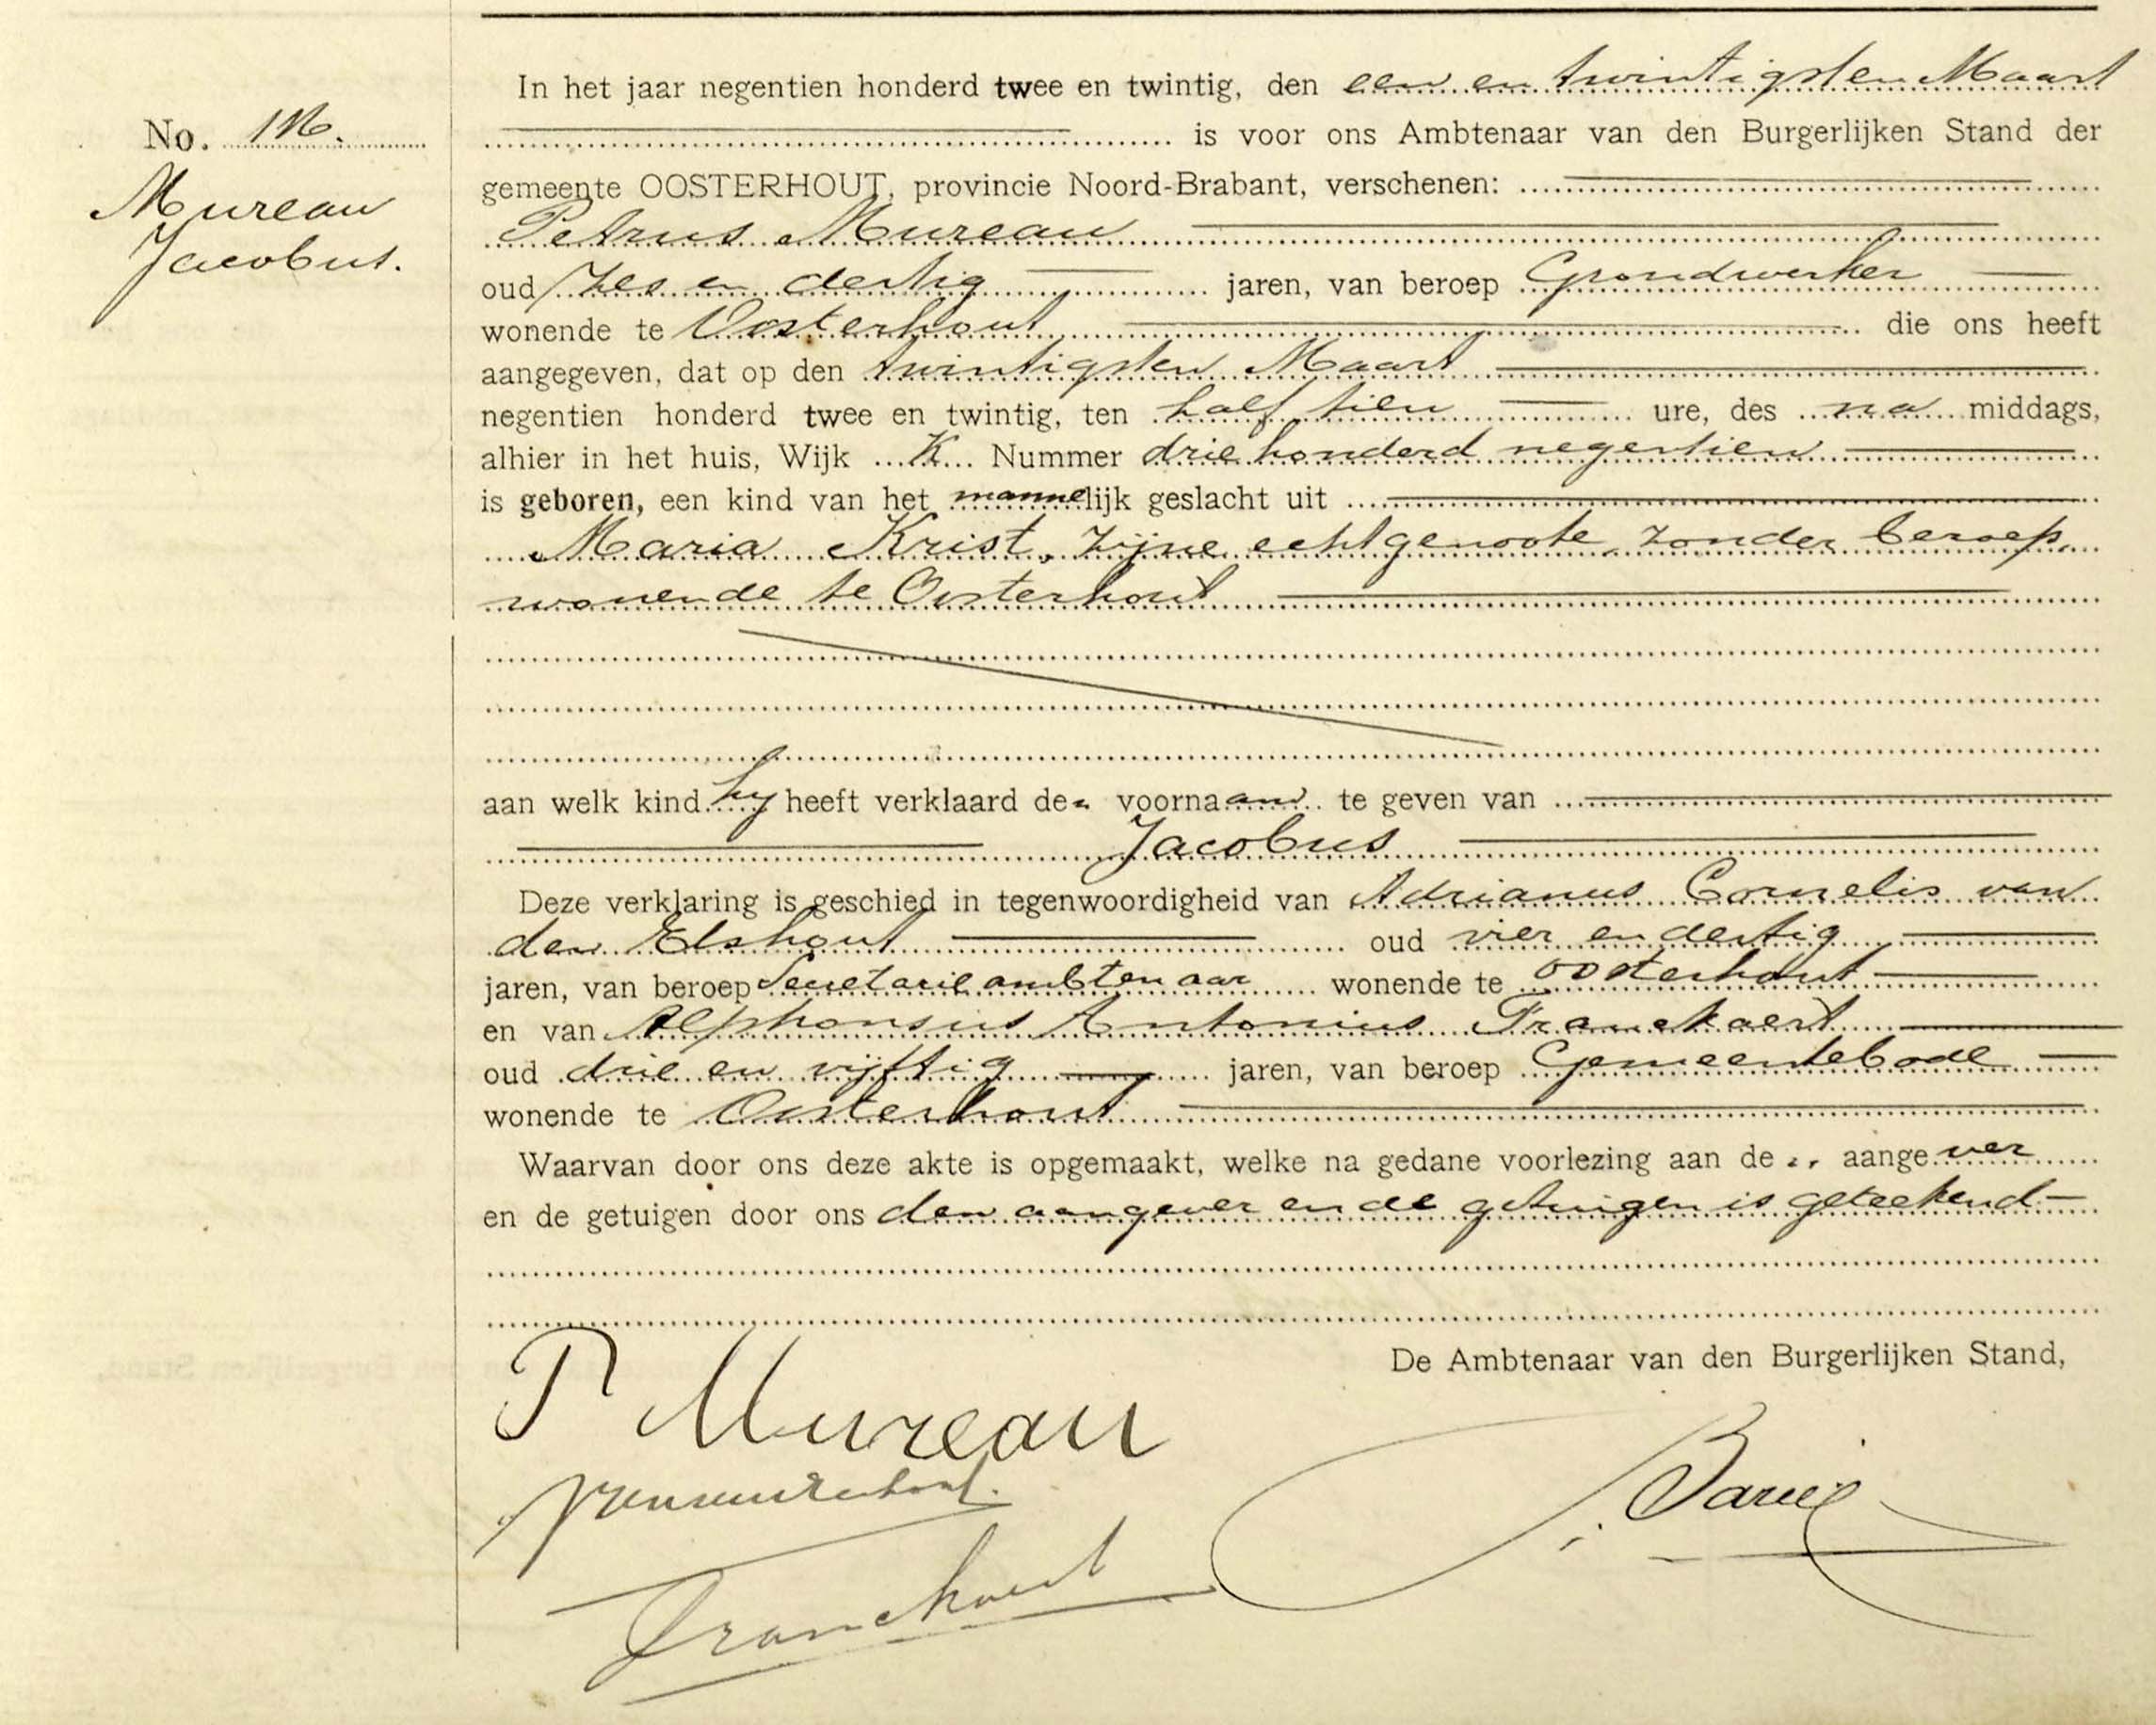 In het jaar negentien honderd twee en twintig, den een en twintigsten Maart
No. 116.
is voor ons Ambtenaar van den Burgerlijken Stand der
gemeente OOSTERHOUT, provincie Noord-Brabant, verschenen:
Mureau
Jacobus.
Petrus Mureau
oud zes en dertig jaren, van beroep Grondwerker
wonende te Oosterhout die ons heeft
aangegeven, dat op den twintigsten Maart
negentien honderd twee en twintig, ten half tien ure, des na middags,
alhier in het huis, Wijk K Nummer driehonderd negentien
is geboren, een kind van het mannelijk geslacht uit
Maria Krist, zijne echtgenoote, zonder beroep,
wonende te Oosterhout
aan welk kind hy heeft verklaard den voornaam te geven van
Jacobus
Deze verklaring is geschied in tegenwoordigheid van Adrianus Cornelis van
den Elshout oud vier en dertig
jaren, van beroep Secretarieambtenaar wonende te Oosterhout
en van Alphonsus Antonius Franckaert
oud drie en vijftig jaren, van beroep Gemeentebode
wonende te Oosterhout
Waarvan door ons deze akte is opgemaakt, welke na gedane voorlezing aan de aangever
en de getuigen door ons den aangever en de getuigen is geteekend
De Ambtenaar van den Burgerlijken Stand,
P Mureau
Franckaert